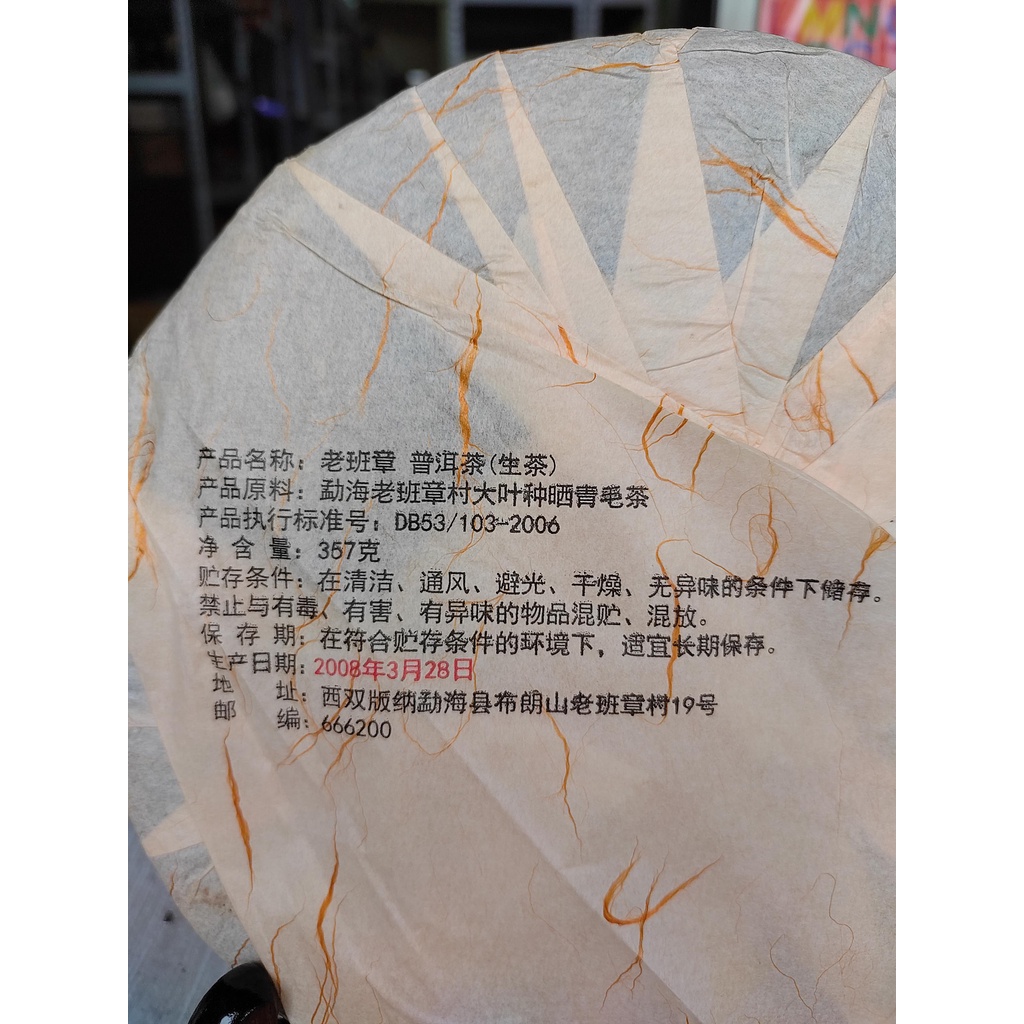 MN
产品名称：老班章 普洱茶(生茶)
产品原料：勐海老班章村大叶种晒青毛茶
产品执行标准号：DB53/103-2006
净 含 量：357克
贮存条件：在清洁、通风、避光、干燥、无异味的条件下储存。
禁止与有毒、有害、有异味的物品混贮、混放。
保 存 期：在符合贮存条件的环境下，适宜长期保存。
生产日期：2008年3月28日
地 址：西双版纳勐海县布朗山老班章村19号
邮 编：666200